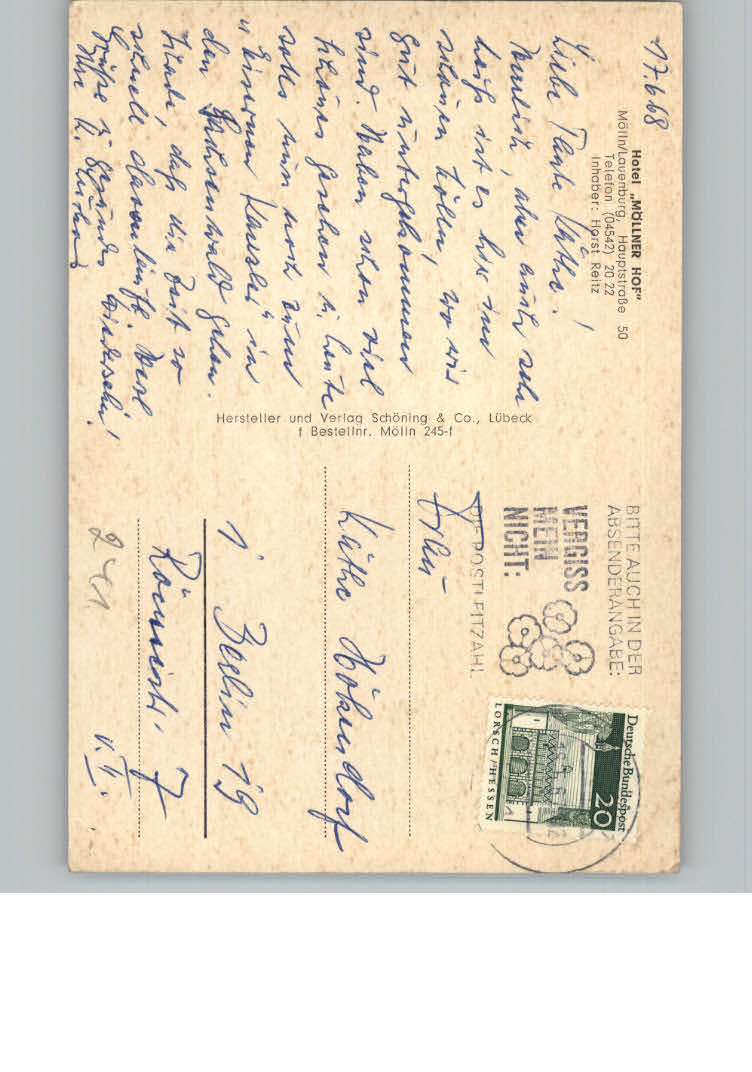 17.6.68
Hotel „MÖLLNER HOF"
Mölln/Lauenburg, Hauptstraße 50
Telefon (04542) 20 22
Inhaber: Horst Reitz
Liebe Tante Käthe!
Herrlich, aber auch sehr
heiß ist es hier im
schönen Mölln, wo wir
gut untergekommen
sind. Haben schon viel
schönes gesehen u. heute
solls nun noch zum
"Eisernen Kanzler" in
den Sachsenwald gehen.
Schade, daß die Zeit so
schnell davonläuft. Herzl
Grüße u. gesundes Wiedersehn!
Ihre
Hersteller und Verlag Schöning & Co., Lübeck
f Bestellnr. Mölln 245-f
BITTE AUCH IN DER
ABSENDERANGABE:
VERGISS
MEIN
NICHT:
DIE POSTLEITZAHL
Deutsche Bundespost
20
LORSCH/HESSEN
Frau
Käthe Hökendorf
1 Berlin 19
7
v. IV.
241